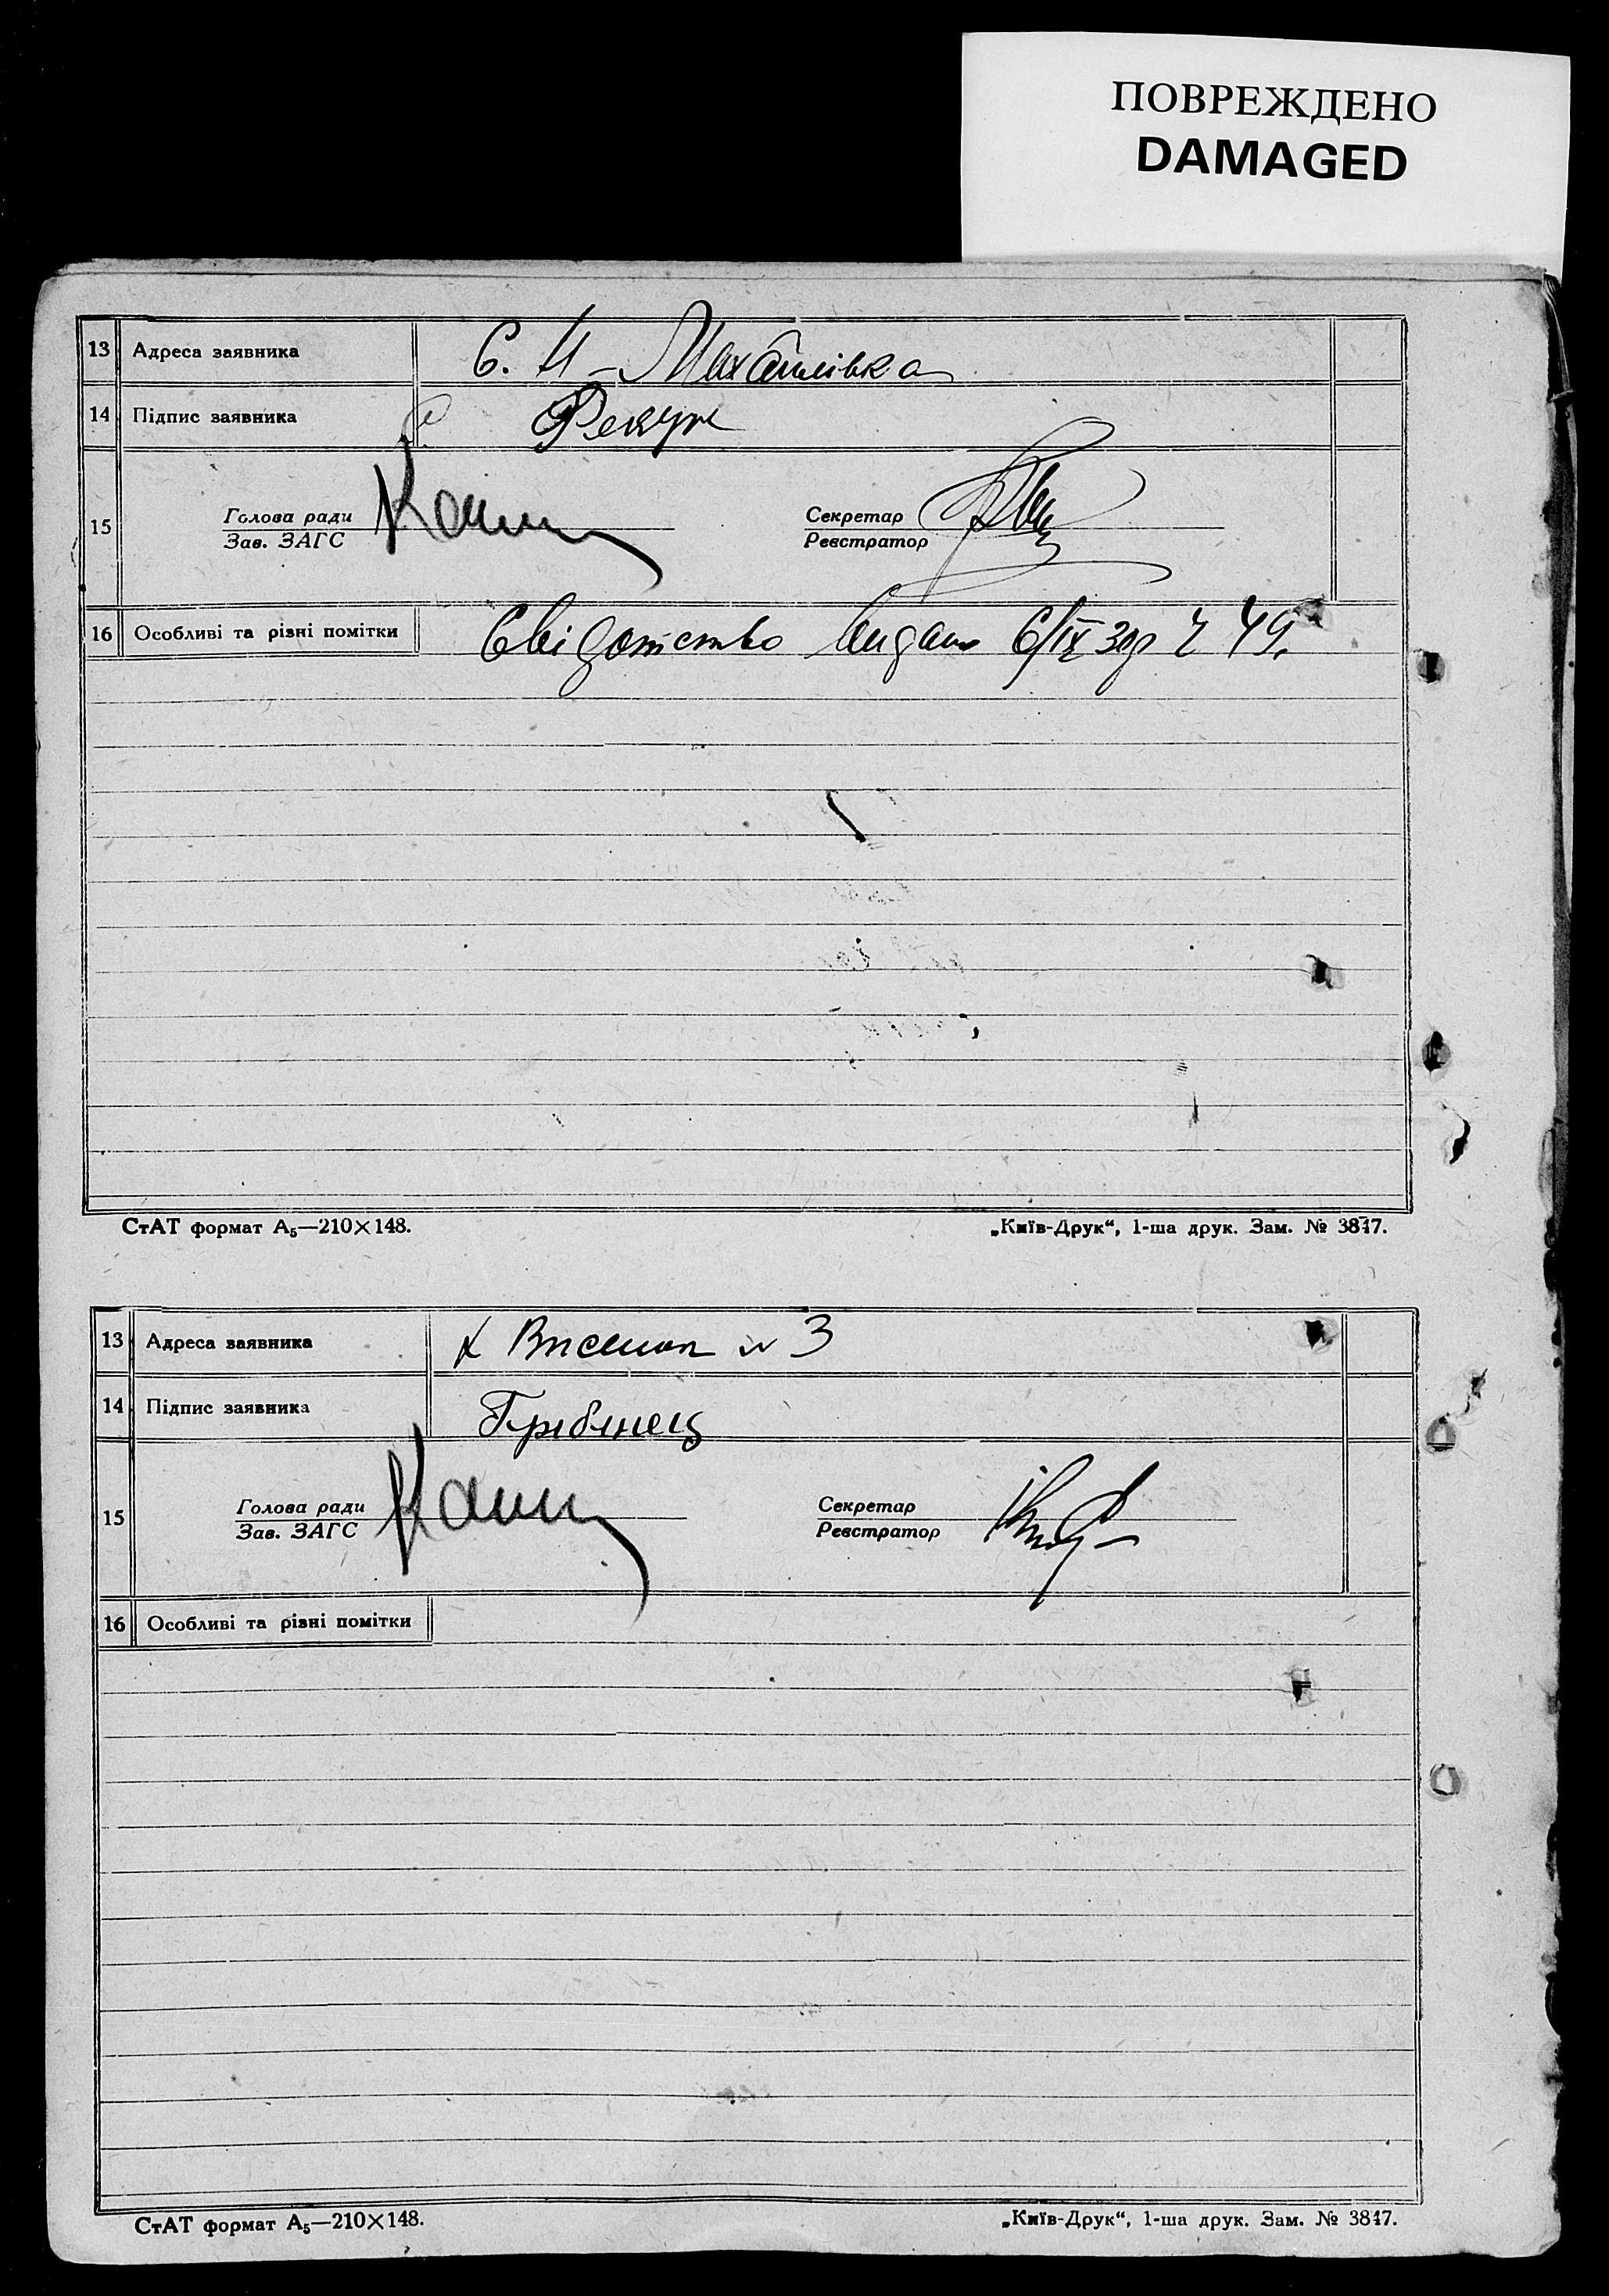 ПОВРЕЖДЕНО
DAMAGED
13 Адреса заявника С. Н-Михайлівка
14 Підпис заявника
15 Голова ради Секретар
Зав. ЗАГС Реєстратор
16 Особливі та різні помітки Свідотство видано 6/ІХ 30р Ч 49.
СтАТ формат А₅—210×148. „Київ-Друк“, 1-ша друк. Зам. № 3847.
13 Адреса заявника х № 3
14 Підпис заявника
15 Голова ради Секретар
Зав. ЗАГС Реєстратор
16 Особливі та різні помітки
СтАТ формат А₅—210×148. „Київ-Друк“, 1-ша друк. Зам. № 3847.